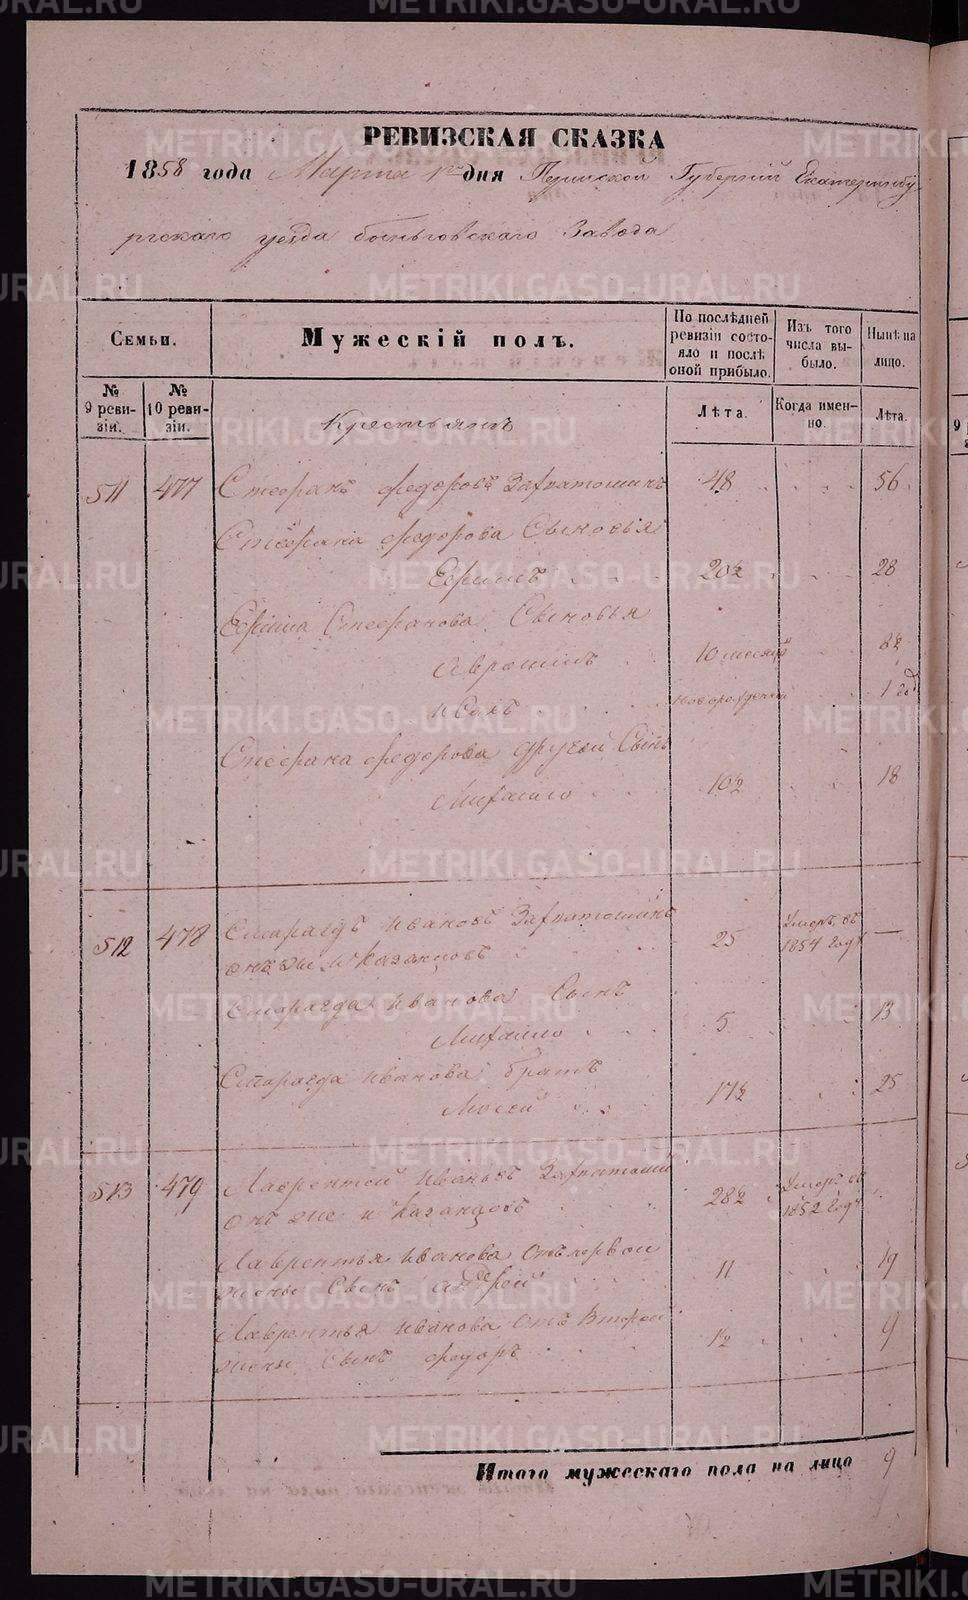 РЕВИЗСКАЯ СКАЗКА
1858 года Марта 1го дня Пермской Губерніи Екатеринбу-
ргскаго уезда быньговскаго Завода
Семьи.
Мужескій полъ.
По послѣдней ревизіи состояло и послѣ оной прибыло.
Изъ того числа выбыло.
Нынѣ на лицо.
№ 9 ревизіи.
№ 10 ревизіи.
Лѣта.
Когда именно.
Лѣта.
Крестьянъ
511 477 Стефанъ федоровъ 48 56
Стефана федорова Сыновья
Ефимъ 20½ 28
Ефима Стефанова Сыновья
Аврамій 10 месяцъ 8½
Иванъ новорожденный 1 год
Стефана федорова другой Сынъ
Михайло 10½ 18
512 478 Смарагдъ Ивановъ 25 Умеръ въ 1854 году —
онъ же и Казанцовъ
Смарагда Иванова Сынъ
Михайло 5 13
Смарагда Иванова братъ
Мосей 17½ 25
513 479 Лаврентей Ивановъ 28½ Умеръ въ 1852 году
онъ же и Казанцовъ
Лаврентья Иванова Отъ первой
жены Сынъ андрей 11 19
Лаврентья Иванова Отъ Второй
жены Сынъ федоръ 1½ 9
Итого мужескаго пола на лицо 9
METRIKI.GASO-URAL.RU